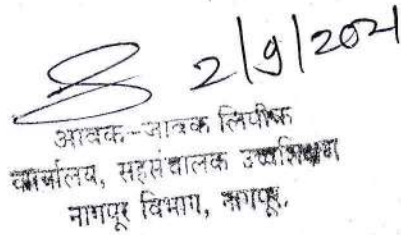 2/9/2021
आवक-जावक लिपीक
कार्यालय, सहसंचालक उच्चशिक्षण
नागपूर विभाग, नागपूर.